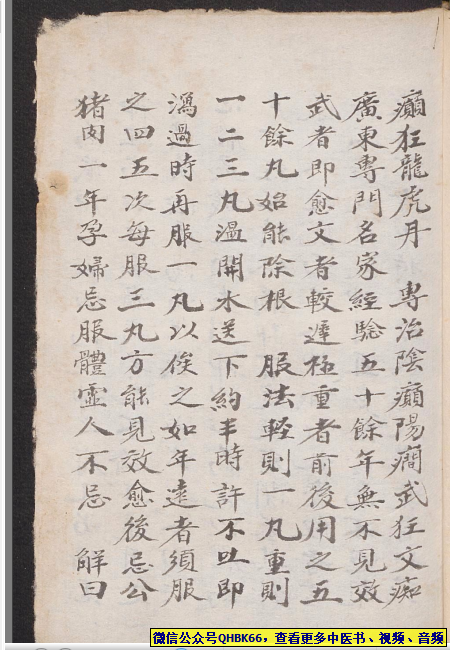 癲狂龍虎丹　專治陰癲陽癇武狂文痴
廣東專門名家經驗五十餘年無不見效
武者即愈文者較遲極重者前後用之五
十餘丸始能除根　服法輕則一丸重則
一二三丸溫開水送下約半時許不吐即
瀉過時再服一丸以俟之如年遠者須服
之四五次每服三丸方能見效愈後忌公
猪肉一年孕婦忌服體靈人不忌　解曰
微信公众号QHBK66，查看更多中医书、视频、音频